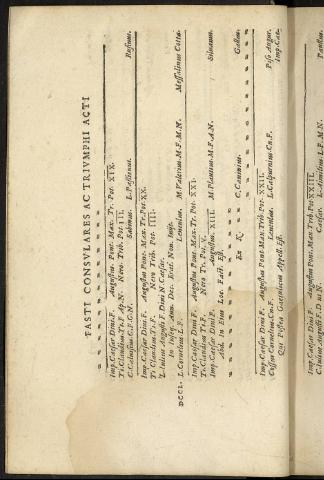 FASTI CONSVLARES AC TRIVMPHI ACTI
Imp. Caesar Diui. F. Augustus Pont. Max. Tr. Pot. XIX.
Ti. Claudius Ti. F. Ap. N. Nero Trib. Pot. III.
C. Caluisius C. F. C. N. Sabinus. L. Passienus. Rufinus.
Imp. Caesar Diui. F. Augustus Pont. Max. Tr. Pot. XX.
Ti. Claudius Ti. F. Nero Trib. Pot. IIII.
L. Iulius Augusti F. Diui N. Caesar.
DCCL. L. Cornelius L. F. Lentulus. M. Valerius M. F. M. N. Messalinus Cotta.
Imp. Caesar Diui F. Augustus Pont. Max. Trib. Pot. XXI.
Ti. Claudius Ti. F. Nero Tr. Pot. V.
Imp. Caesar Diui F. Augustus XIII. M. Plautius M. F. A. N. Siluanus.
Abd. In Eius Loc. Fact. Est.
Ex K. C. Caninius. Gallus.
Imp. Caesar Diui F. Augustus Pont. Max. Trib. Pot. XXII.
Cossus Cornelius Cn. F. Lentulus. L. Calpurnius Cn. F. Piso Augur.
Qui Postea Gaetulicus Appell. Est. Imp. Cae-
Imp. Caesar Diui F. Augustus Pont. Max. Trib. Pot. XXIII.
C. Iulius Augusti F. Diui N. Caesar. L. Aimilius L. F. M. N. Paullus.